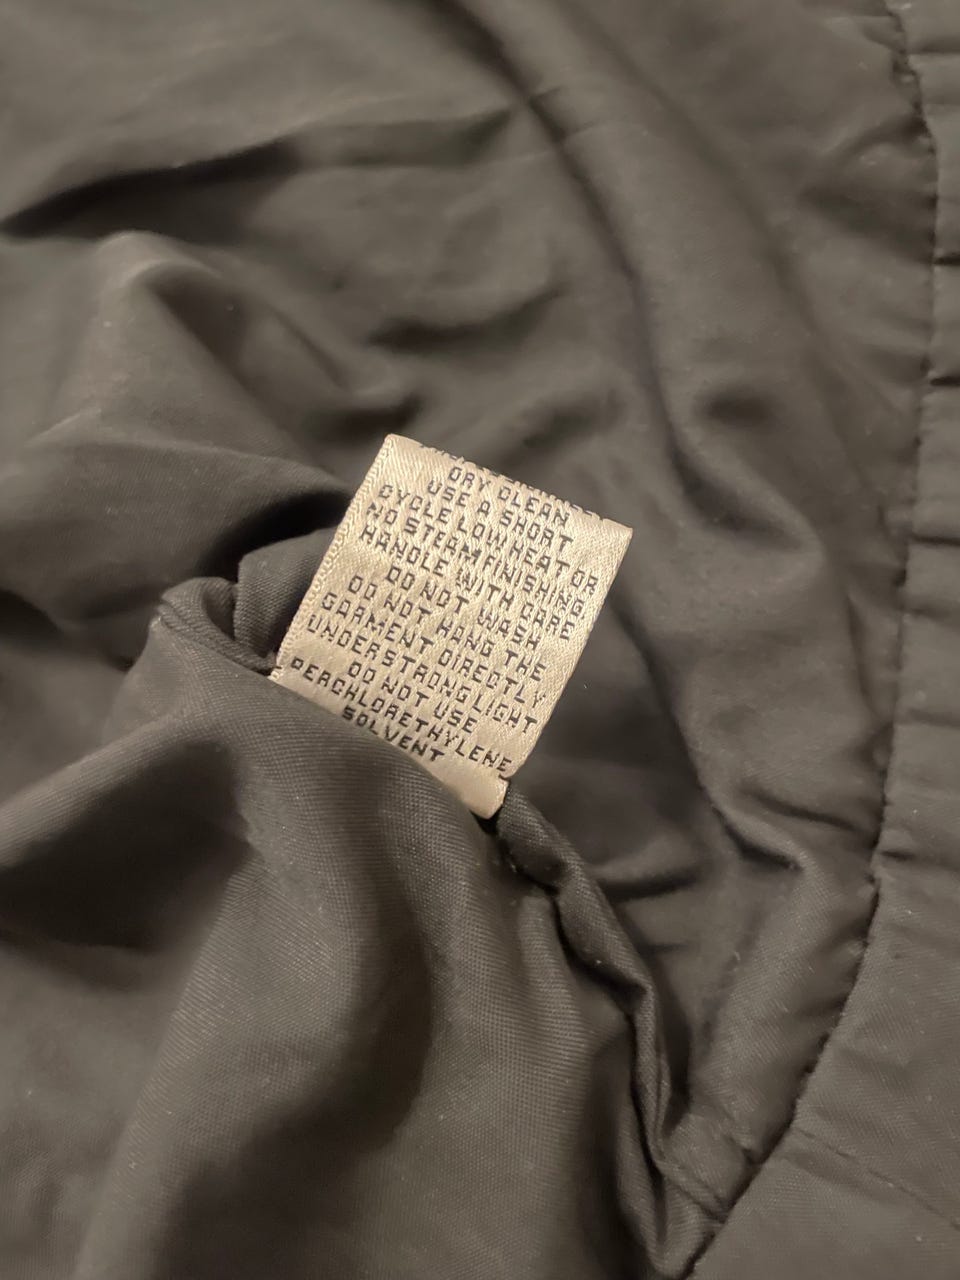 DRY CLEAN
USE A SHORT
CYCLE LOW HEAT OR
NO STEAM FINISHING
HANDLE WITH CARE
DO NOT WASH
DO NOT HANG THE
GARMENT DIRECTLY
UNDER STRONG LIGHT
DO NOT USE
PERCHLORETHYLENE
SOLVENT